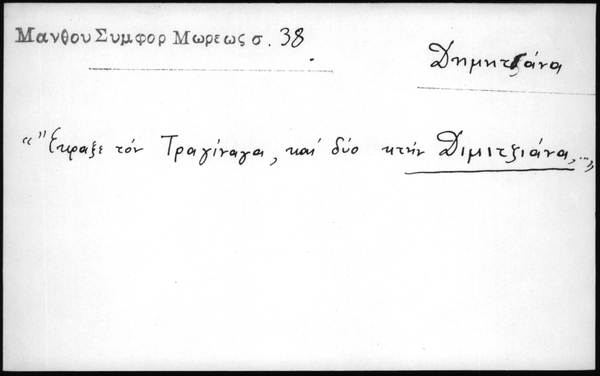 Μανθου Συμφορ Μωρεως σ. 38
Δημητζάνα
“"Έκραξε τόν Τραγίναγα, καί δύο κτήν Διμιτζιάνα,...„